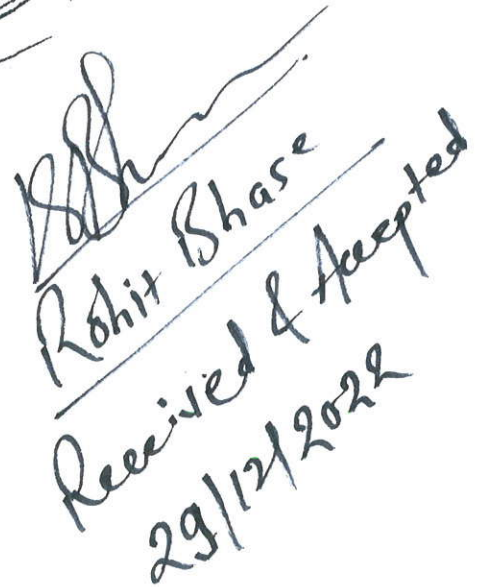 Rohit Bhase
Received & Accepted
29/12/2022